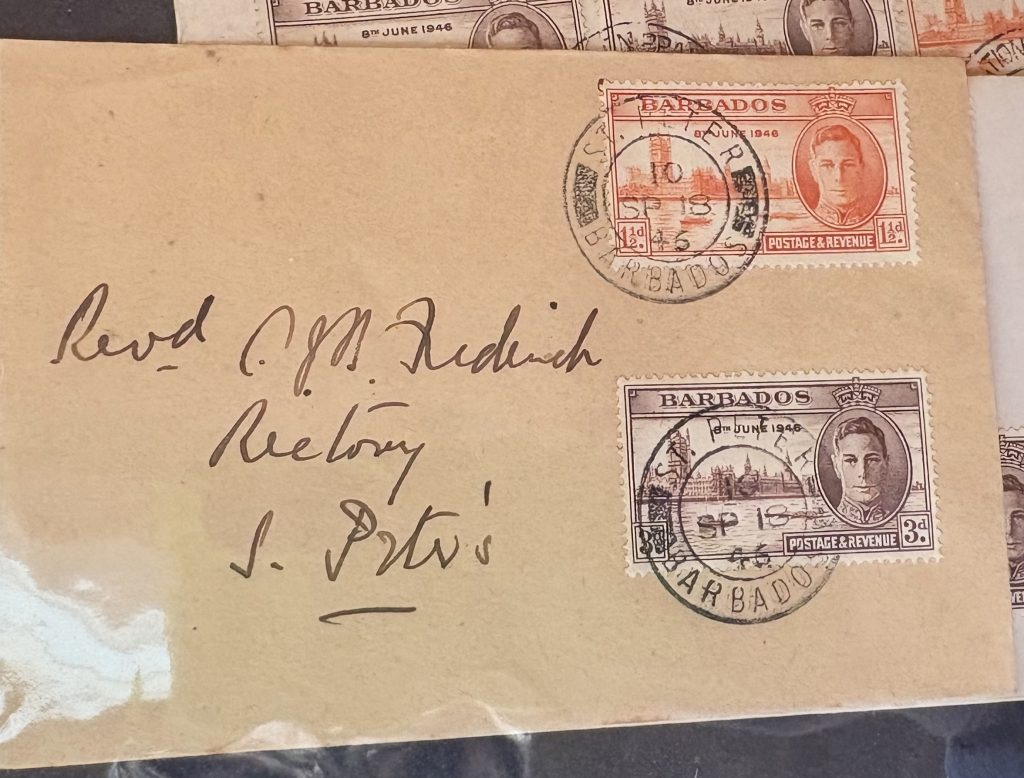 BARBADOS
8TH JUNE 1946
8TH JUNE 1946
BARBADOS
8TH JUNE 1946
1½d.
POSTAGE & REVENUE
1½d.
ST. PETER
10
SP 18
46
BARBADOS
Revd C. J. B. Frederick
Rectory
S. Peter's
BARBADOS
8TH JUNE 1946
3d.
POSTAGE & REVENUE
3d.
ST. PETER
10
SP 18
46
BARBADOS